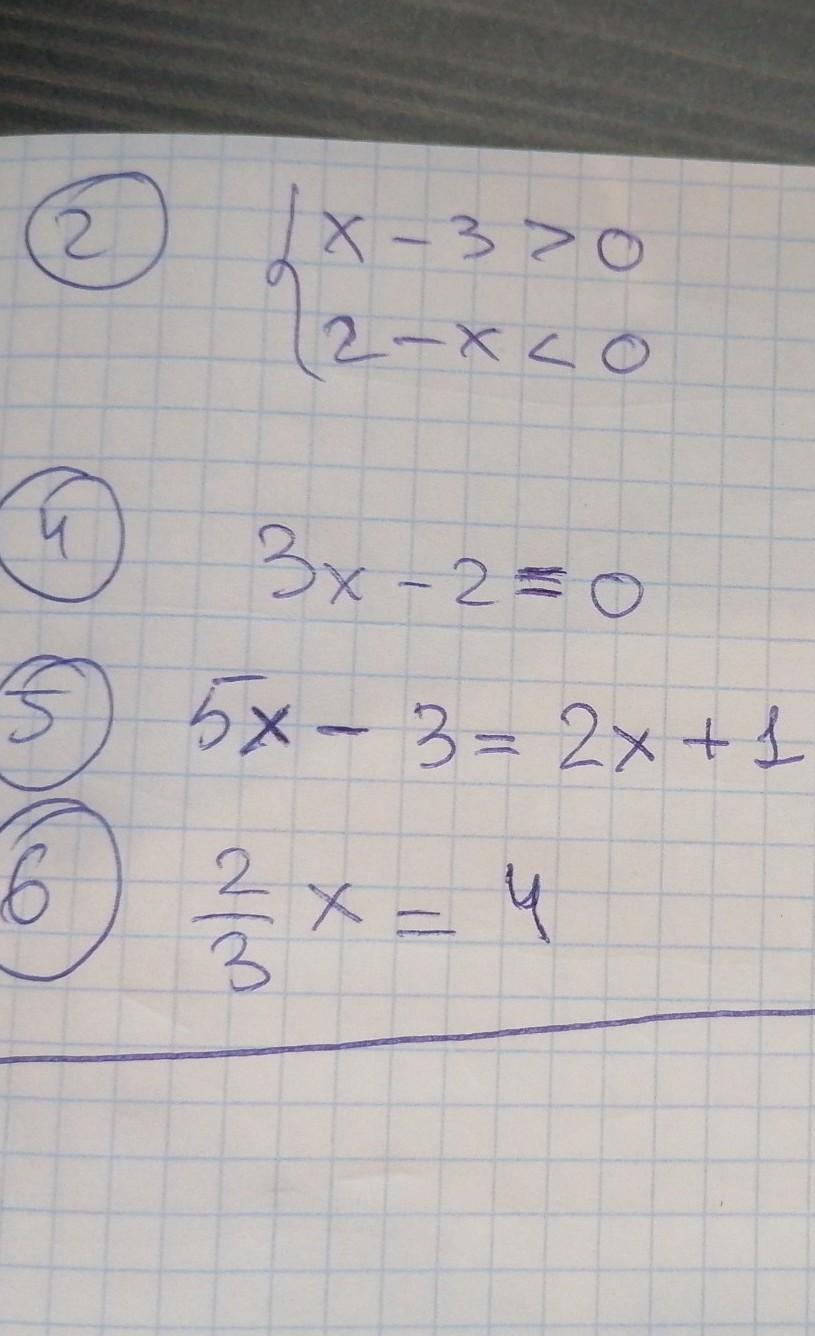 ② { x - 3 > 0
2 - x < 0
④ 3x - 2 = 0
⑤ 5x - 3 = 2x + 1
⑥ 2/3 x = 4